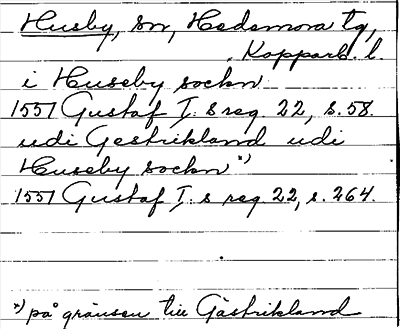 Husby, sn, Hedemora tg,
Kopparb. l.
i Huseby sockn
1551 Gustaf I. s reg. 22, s. 58.
udi Gestrikland udi
Huseby sockn *)
1551 Gustaf I. s reg 22, s. 264.
*) på gränsen till Gästrikland